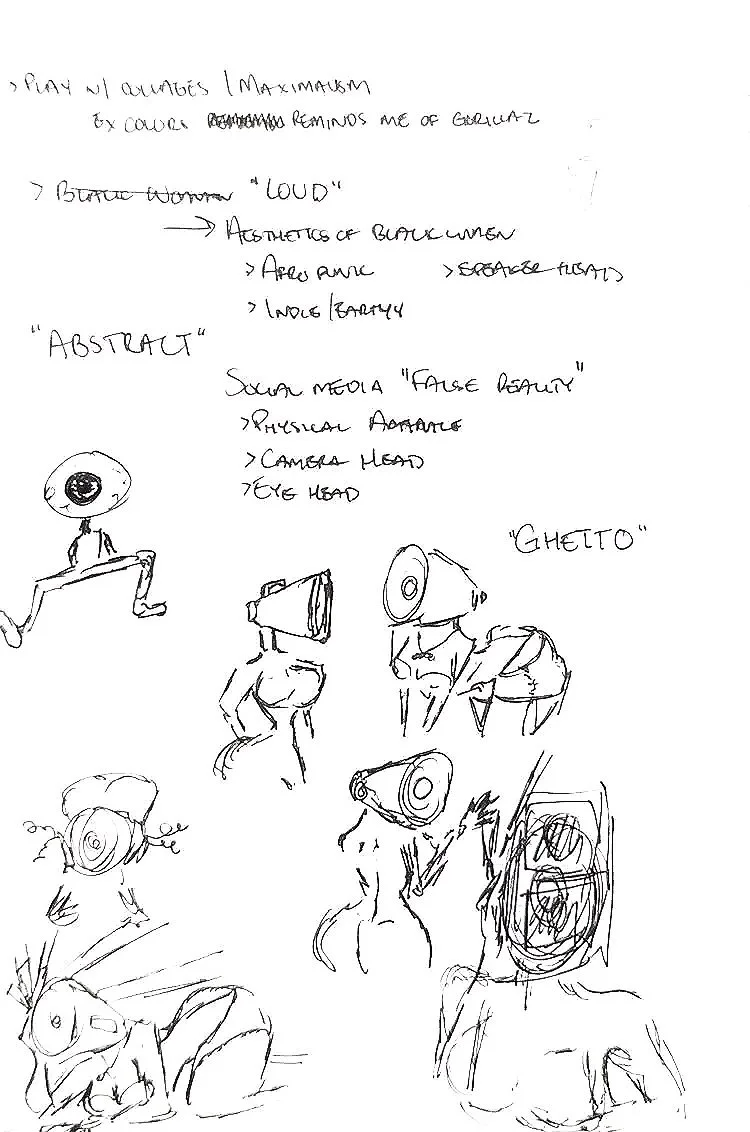 > PLAY W/ COLLAGES / MAXIMALISM
EX COLORS REMINDS ME OF GORILLAZ
> BLACK WOMAN "LOUD"
→ AESTHETICS OF BLACK WOMEN
> AFRO PUNK > SPEAKER HEADS
> INDIE/EARTHY
"ABSTRACT"
SOCIAL MEDIA "FALSE REALITY"
> PHYSICAL
> CAMERA HEAD
> EYE HEAD
"GHETTO"